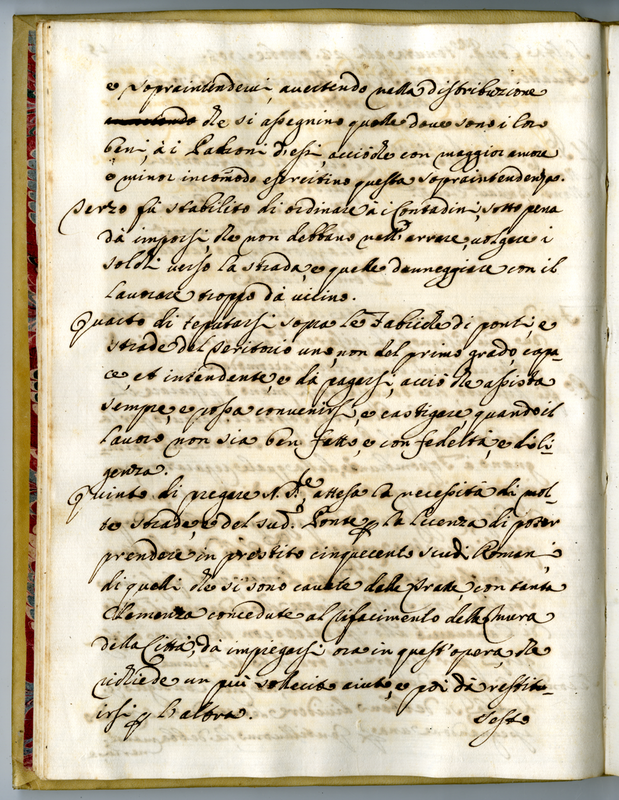 e sopraintenderui, auertendo nella distribuzione
che si assegnino quelle doue sono i loro
beni, à i Padroni d'essi, acciòche con maggior amore
ò minor incomodo esercitino questa sopraintendenza.
Terzo fù stabilito di ordinare à i Contadini, sotto pena
dà imporsi, che non debbano nell'arrare, uolgere i
solchi uerso la strada, e quelle danneggiare con il
lauorare troppo dà uicino.
Quarto di deputarsi sopra le Fabriche di ponti, e
strade del Territorio uno, non del primo grado, capa-
ce, et intendente, e dà pagarsi, acciò che assista
sempre, e possa conuenirsi, e castigare, quando il
lauoro, non sia ben fatto, e con fedeltà, e dili-
genza.
Quinto di pregare N. S.re, attesa la necessità di mol-
te strade, e del sud.o Ponte, p la licenza di poter
prendere in prestito cinquecento scudi Romani
di quelli che si sono cauate dalle Tratte con tanta
Clemenza concedute al rifacimento delle Mura
della Città, dà impiegarsi ora in quest'opera, che
richiede un più sollecito aiuto, e poi dà restitu-
irsi p l'altra.
Sesto